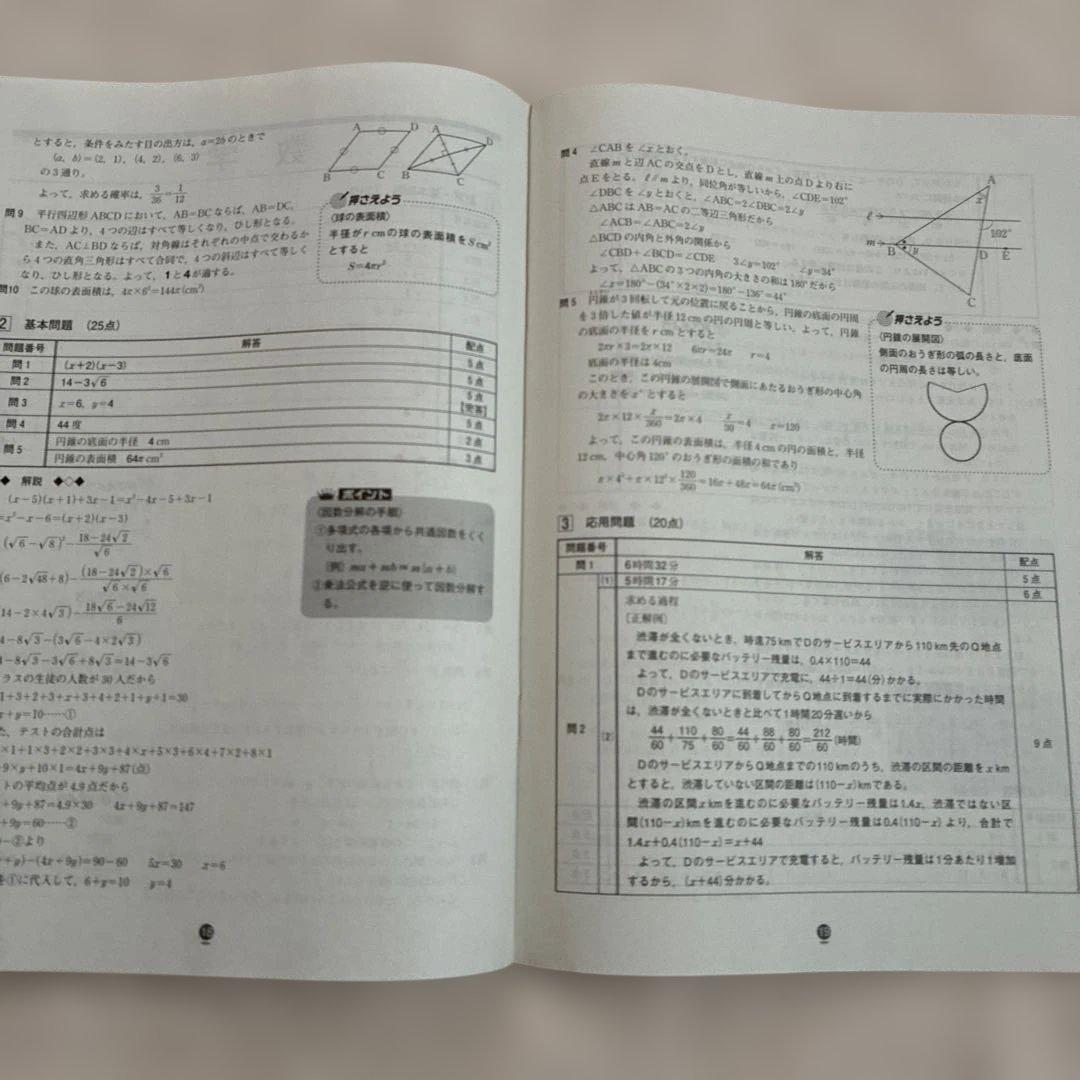 とすると，条件をみたす目の出方は，a=2bのときで
(a, b)=(2, 1), (4, 2), (6, 3)
の3通り。
よって，求める確率は，3/36=1/12
問9 平行四辺形ABCDにおいて，AB=BCならば，AB=DC,
BC=ADより，4つの辺はすべて等しくなり，ひし形となる。
また，AC⊥BDならば，対角線はそれぞれの中点で交わるか
ら4つの直角三角形はすべて合同で，4つの斜辺はすべて等しく
なり，ひし形となる。よって，1と4が適する。
問10 この球の表面積は，4π×6²=144π(cm²)
A D A D
B C B C
押さえよう
〈球の表面積〉
半径がr cmの球の表面積をS cm²
とすると
S=4πr²
2 基本問題 (25点)
問題番号 解答 配点
問1 (x+2)(x-3) 5点
問2 14-3√6 5点
問3 x=6, y=4 5点
【完答】
問4 44度 5点
問5 円錐の底面の半径 4cm 2点
円錐の表面積 64π cm² 3点
◆ 解説 ◆◇◆
(x-5)(x+1)+3x-1=x²-4x-5+3x-1
=x²-x-6=(x+2)(x-3)
(√6-√8)²-(18-24√2)/√6
(6-2√48+8)-((18-24√2)×√6)/(√6×√6)
14-2×4√3)-(18√6-24√12)/6
4-8√3-(3√6-4×2√3)
4-8√3-3√6+8√3=14-3√6
ラスの生徒の人数が30人だから
1+3+2+3+x+3+4+2+1+y+1=30
x+y=10……①
た，テストの合計点は
×1+1×3+2×2+3×3+4×x+5×3+6×4+7×2+8×1
+9×y+10×1=4x+9y+87(点)
トの平均点が4.9点だから
+9y+87=4.9×30 4x+9y+87=147
+9y=60……②
-②より
+y)-(4x+9y)=90-60 5x=30 x=6
を①に代入して，6+y=10 y=4
ポイント
〈因数分解の手順〉
①多項式の各項から共通因数をくく
り出す。
(例) ma+mb=m(a+b)
②乗法公式を逆に使って因数分解す
る。
18
問4 ∠CABを∠xとおく。
直線mと辺ACの交点をDとし，直線m上の点Dより右に
点Eをとる。ℓ//mより，同位角が等しいから，∠CDE=102°
∠DBCを∠yとおくと，∠ABC=2∠DBC=2∠y
△ABCはAB=ACの二等辺三角形だから
∠ACB=∠ABC=2∠y
△BCDの内角と外角の関係から
∠CBD+∠BCD=∠CDE 3∠y=102° ∠y=34°
よって，△ABCの3つの内角の大きさの和は180°だから
∠x=180°-(34°×2×2)=180°-136°=44°
A
x
ℓ
102°
m B y D E
C
問5 円錐が3回転して元の位置に戻ることから，円錐の底面の円周
を3倍した値が半径12cmの円の円周と等しい。よって，円錐
の底面の半径をr cmとすると
2πr×3=2π×12 6πr=24π r=4
底面の半径は4cm
このとき，この円錐の展開図で側面にあたるおうぎ形の中心角
の大きさをx°とすると
2π×12×x/360=2π×4 x/30=4 x=120
よって，この円錐の表面積は，半径4cmの円の面積と，半径
12cm，中心角120°のおうぎ形の面積の和であり
π×4²+π×12²×120/360=16π+48π=64π(cm²)
押さえよう
〈円錐の展開図〉
側面のおうぎ形の弧の長さと，底面
の円周の長さは等しい。
3 応用問題 (20点)
問題番号 解答 配点
問1 6時間32分 5点
問2 (1) 5時間17分 6点
(2) 求める過程
[正解例]
渋滞が全くないとき，時速75kmでDのサービスエリアから110km先のQ地点
まで進むのに必要なバッテリー残量は，0.4×110=44
よって，Dのサービスエリアで充電に，44÷1=44(分)かかる。
Dのサービスエリアに到着してからQ地点に到着するまでに実際にかかった時間
は，渋滞が全くないときと比べて1時間20分遅いから
44/60+110/75+80/60=44/60+88/60+80/60=212/60(時間)
DのサービスエリアからQ地点までの110kmのうち，渋滞の区間の距離をxkm
とすると，渋滞していない区間の距離は(110-x)kmである。
渋滞の区間xkmを進むのに必要なバッテリー残量は1.4x，渋滞ではない区
間(110-x)kmを進むのに必要なバッテリー残量は0.4(110-x)より，合計で
1.4x+0.4(110-x)=x+44
よって，Dのサービスエリアで充電すると，バッテリー残量は1分あたり1増加
するから，(x+44)分かかる。
9点
19